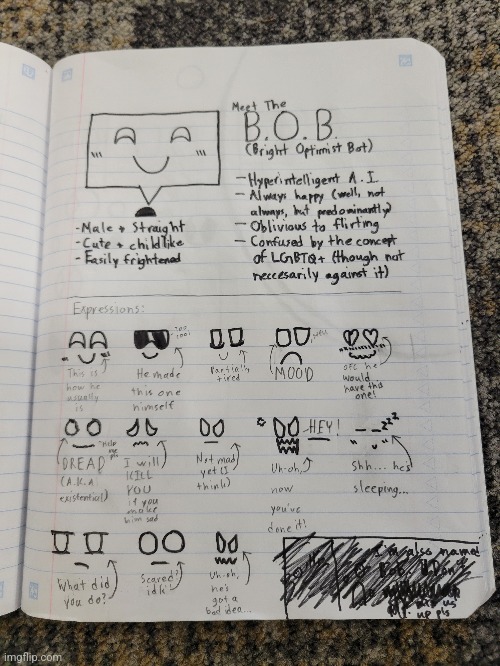 Meet The
B.O.B.
(Bright Optimist Bot)
- Hyperintelligent A.I.
- Always happy (well, not
always, but predominantly)
- Oblivious to flirting
- Confused by the concept
of LGBTQ+ (though not
neccesarily against it)
- Male + Straight
- Cute + childlike
- Easily frightened
Expressions:
This is
how he
usually
is
He made
this one
himself
Partially
tired
MOOD
ofc he
would
have this
one!
DREAD
(A.K.A.
existential)
I will
KILL
YOU
if you
make
him sad
Not mad
yet (I
think)
HEY!
Uh-oh,
now
you've
done it!
zzz
Shh... he's
sleeping...
What did
you do?
Scared?
idk!
Uh-oh,
he's
got a
bad idea...
also named
us
up pls
imgflip.com